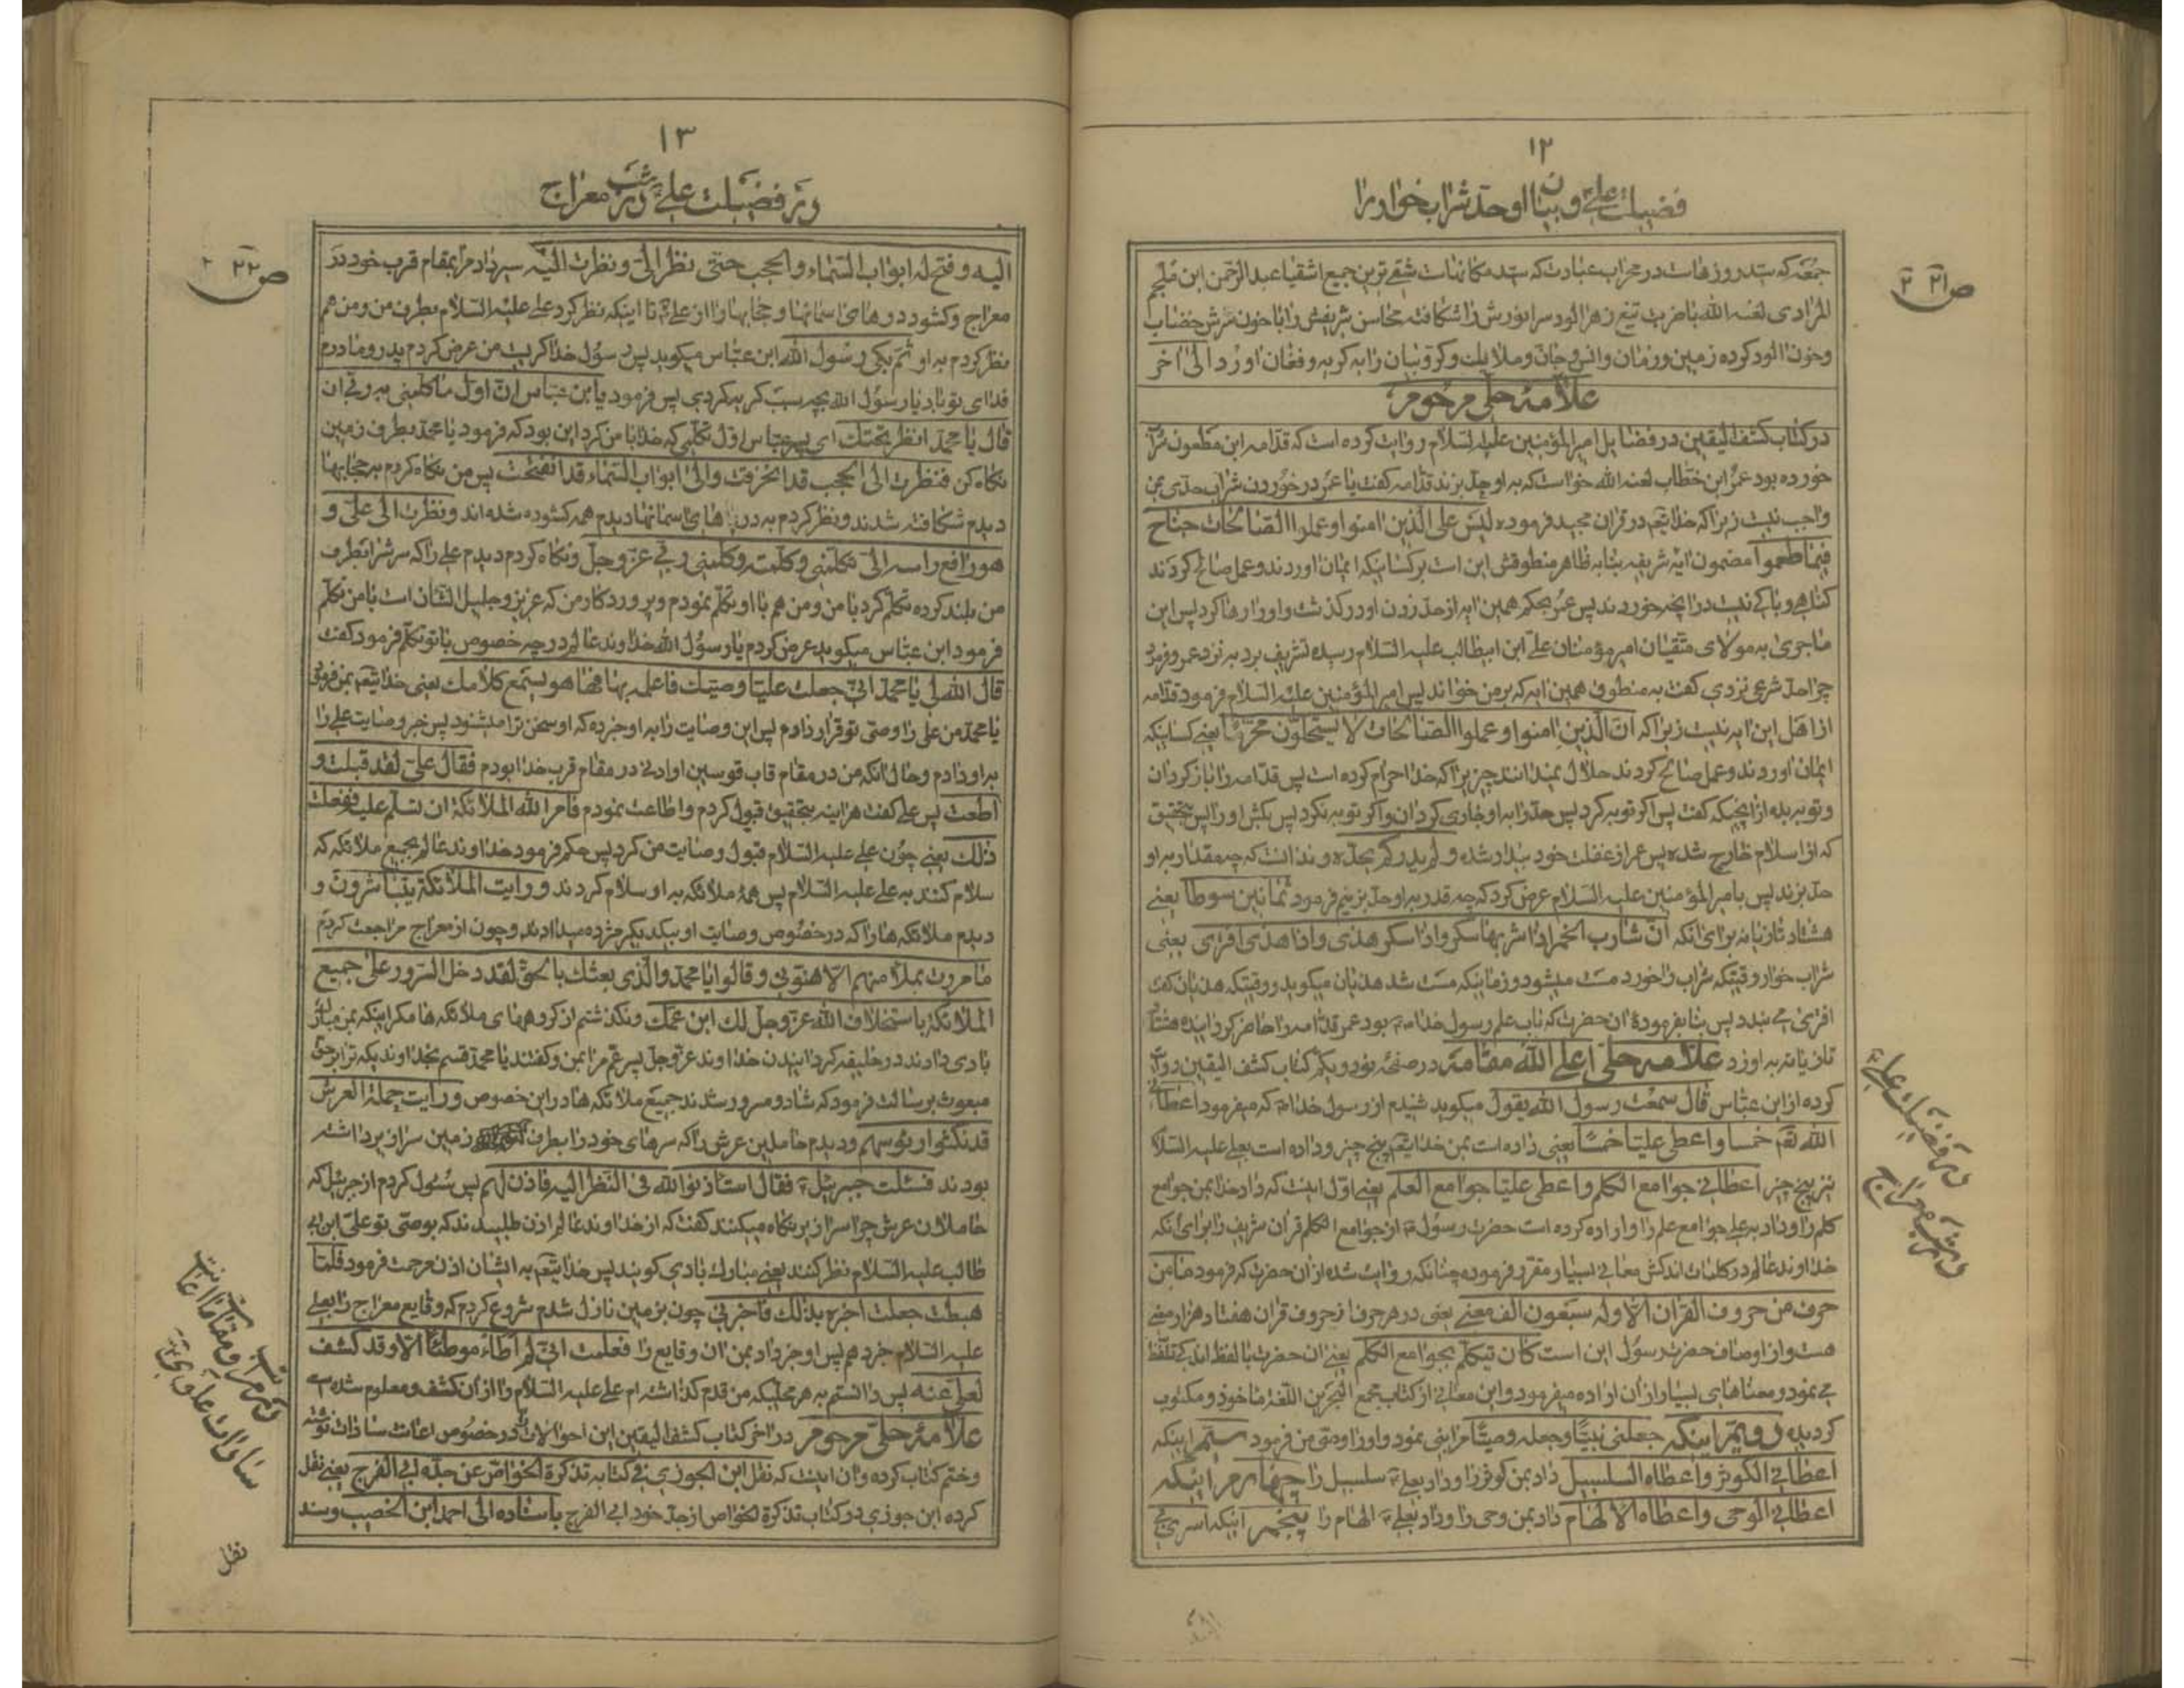 ۱۲
فضیلت علی و بیان او حد شراب خوار را
ص ۲۱ ۲
جمعه که سید روزهاست در محراب عبادت که سید مکانهاست شقی‌ترین جمیع اشقیا عبدالرحمن ابن ملجم
المرادی لعنه الله با ضربت تیغ زهر الود سر انورش را شکافته محاسن شریفش را با خون سرش خضاب
و خون الود کرده زمین و زمان و انس و جان و ملایک و کروبیان را به کریه و فغان اورد الی اخر
علامه حلی مرحوم
در کتاب کشف الیقین در فضایل امیر المؤمنین علیه السلام روایت کرده است که قدامه ابن مظعون شراب
خورده بود عمر ابن خطاب لعنه الله خواست که به او حد بزند قدامه کفت یا عمر در خوردن شراب حدی بمن
واجب نیست زیرا که خدایتعم در قران مجید فرموده لیس علی الذین امنوا و عملوا الصالحات جناح
فیما طعموا مضمون ایه شریفه بنا به ظاهر منطوقش این است بر کسانیکه ایمان اوردند و عمل صالح کردند
کناهی و باکی نیست در انچه خوردند پس عمر بحکم همین ایه از حد زدن او در کذشت و او را رها کرد پس این
ماجری به مولای متقیان امیر مؤمنان علی ابن ابیطالب علیه السلام رسید تشریف برد به نزد عمر و فرمود
چرا حد شرعی نزدی کفت به منطوق همین ایه که بر من خواند پس امیر المؤمنین علیه السلام فرمود قدامه
از اهل این ایه نیست زیرا که ان الذین امنوا و عملوا الصالحات لا یستحلون محرما یعنی کسانیکه
ایمان اوردند و عمل صالح کردند حلال نمیدانند چیزیرا که خدا حرام کرده است پس قدامه را باز کردان
و توبه بده از انچیکه کفت پس اکر توبه کرد پس حد را به او جاری کردان و اکر توبه نکرد پس بکش او را پس بتحقیق
که از اسلام خارج شده پس عمر از غفلت خود بیدار شده و لم یدر کم یحده و ندانست که چه مقدار به او
حد بزند پس بامیر المؤمنین علیه السلام عرض کرد که چه قدر به او حد بزنیم فرمود ثمانین سوطا یعنی
هشتاد تازیانه برای انکه ان شارب الخمر اذا شربها سکر و اذا سکر هذی و اذا هذی افتری یعنی
شراب خوار وقتیکه شراب را خورد مست میشود و زمانیکه مست شد هذیان میکوید و وقتیکه هذیان کفت
افتری می بندد پس بنا بفرموده ان حضرت که باب علم رسول خدا بود عمر قدامه را حاضر کردانیده هشتاد
تازیانه به او زد علامه حلی اعلی الله مقامه در صفحه نود و یکم کتاب کشف الیقین روایت
کرده از ابن عباس قال سمعت رسول الله یقول میکوید شنیدم از رسول خدا که میفرمود اعطانی
الله تعم خمسا و اعطی علیا خمسا یعنی داده است بمن خدایتعم پنج چیز و داده است بعلی علیه السلام
نیز پنج چیز اعطانی جوامع الکلم و اعطی علیا جوامع العلم یعنی اول اینست که داد خدا بمن جوامع
کلم را و داد به علی جوامع علم را و اراده کرده است حضرت رسول از جوامع الکلم قران شریف را برای انکه
خداوند عالم در کلمات اندکش معانی بسیار مقرر فرموده چنانکه روایت شده از ان حضرت که فرمود ما من
حرف من حروف القران الا و له سبعون الف معنی یعنی در هر حرف از حروف قران هفتاد هزار معنی
هست و از اوصاف حضرت رسول این است کان یتکلم بجوامع الکلم یعنی ان حضرت با لفظ اندکی تلفظ
می نمود و معناهای بسیار از ان اراده میفرمود و این معانی از کتاب مجمع البحرین اللغة ماخوذ و مکتوب
کردید دویم اینکه جعلنی نبیا و جعله وصیا مرا نبی نمود و او را وصی من فرمود سیم اینکه
اعطانی الکوثر و اعطاه السلسبیل داد بمن کوثر را و داد بعلی سلسبیل را چهارم اینکه
اعطانی الوحی و اعطاه الالهام داد بمن وحی را و داد بعلی الهام را پنجم اینکه اسری بی
در فضیلت علی
در شب معراج
۱۳
در فضیلت علی در شب معراج
ص ۲۲ ۲
الیه و فتح له ابواب السماء و الحجب حتی نظر الی و نظرت الیه سیر داد مرا بمقام قرب خود در
معراج و کشود درهای اسمانها و حجابها را از علی تا اینکه نظر کرد علی علیه السلام بطرف من و من هم
نظر کردم به او ثم بکی رسول الله ابن عباس میکوید پس رسول خدا کریست من عرض کردم پدر و مادرم
فدای تو باد یا رسول الله بچه سبب کریه کردی پس فرمود یابن عباس ان اول ما کلمنی به ربی ان
قال یا محمد انظر تحتک ای پسر عباس اول تکلمی که خدا با من کرد این بود که فرمود یا محمد بطرف زمین
نکاه کن فنظرت الی الحجب قد انخرقت و الی ابواب السماء قد انفتحت پس من نکاه کردم به حجابها
دیدم شکافته شدند و نظر کردم به درهای اسمانها دیدم همه کشوده شده اند و نظرت الی علی و
هو رافع راسه الی فکلمنی و کلمته و کلمنی ربی عز و جل و نکاه کردم دیدم علی را که سرش را بطرف
من بلند کرده تکلم کرد با من و من هم با او تکلم نمودم و پروردکار من که عزیز و جلیل الشان است با من تکلم
فرمود ابن عباس میکوید عرض کردم یا رسول الله خداوند عالم در چه خصوص با تو تکلم فرمود کفت
قال الله لی یا محمد انی جعلت علیا وصیک فاعلمه بها فها هو یستمع کلامک یعنی خدایتعم بمن فرمود
یا محمد من علی را وصی تو قرار دادم پس این وصایت را به او خبر ده که او سخن ترا میشنود پس خبر وصایت علی را
به او دادم و حال انکه من در مقام قاب قوسین او ادنی در مقام قرب خدا بودم فقال علی لقد قبلت و
اطعت پس علی کفت هر اینه بتحقیق قبول کردم و اطاعت نمودم فامر الله الملائکة ان تسلم علیه ففعلت
ذلک یعنی چون علی علیه السلام قبول وصایت من کرد پس حکم فرمود خداوند عالم بجمیع ملائکه که
سلام کنند به علی علیه السلام پس همه ملائکه به او سلام کردند و رایت الملائکة یتباشرون و
دیدم ملائکه ها را که در خصوص وصایت او بیکدیکر مژده میدادند و چون از معراج مراجعت کردم
ما مررت بملاء منهم الا هنؤنی و قالوا یا محمد و الذی بعثک بالحق لقد دخل السرور علی جمیع
الملائکة باستخلاف الله عز و جل لک ابن عمک و نکذشتم از کروههای ملائکه ها مکر اینکه بمن مبارک
بادی دادند در خلیفه کردانیدن خداوند عز و جل پسر عم مرا بمن و کفتند یا محمد قسم بخداوندیکه ترا بر حق
مبعوث برسالت فرمود که شاد و مسرور شدند جمیع ملائکه ها در این خصوص و رایت حملة العرش
قد نکسوا رؤسهم و دیدم حاملین عرش را که سرهای خود را بطرف زمین سرازیر داشته
بودند فسئلت جبرئیل فقال استاذنوا الله فی النظر الیه فاذن لهم پس سئول کردم از جبرئیل که
حاملان عرش چرا سرازیر نکاه میکنند کفت که از خداوند عالم اذن طلبیدند که بوصی تو علی ابن ابی
طالب علیه السلام نظر کنند یعنی مبارک بادی کویند پس خدایتعم به ایشان اذن مرحمت فرمود فلما
هبطت جعلت اخبره بذلک فاخبرنی چون بزمین نازل شدم شروع کردم که وقایع معراج را بعلی
علیه السلام خبر دهم پس او خبر داد بمن ان وقایع را فعلمت انی لم اطاء موطئا الا و قد کشف
لعلی عنه پس دانستم به هر محلیکه من قدم کذاشته ام علی علیه السلام را از ان کشف و معلوم شده است
علامه حلی مرحوم در اخر کتاب کشف الیقین این احوالات را در خصوص اعانت سادات نوشته
و ختم کتاب کرده و ان اینست که نقل ابن الجوزی فی کتابه تذکرة الخواص عن جده ابی الفرج یعنی نقل
کرده ابن جوزی در کتاب تذکرة الخواص از جد خود ابی الفرج باسناده الی احمد ابن الخصیب و سند
سادات علوی
نقل